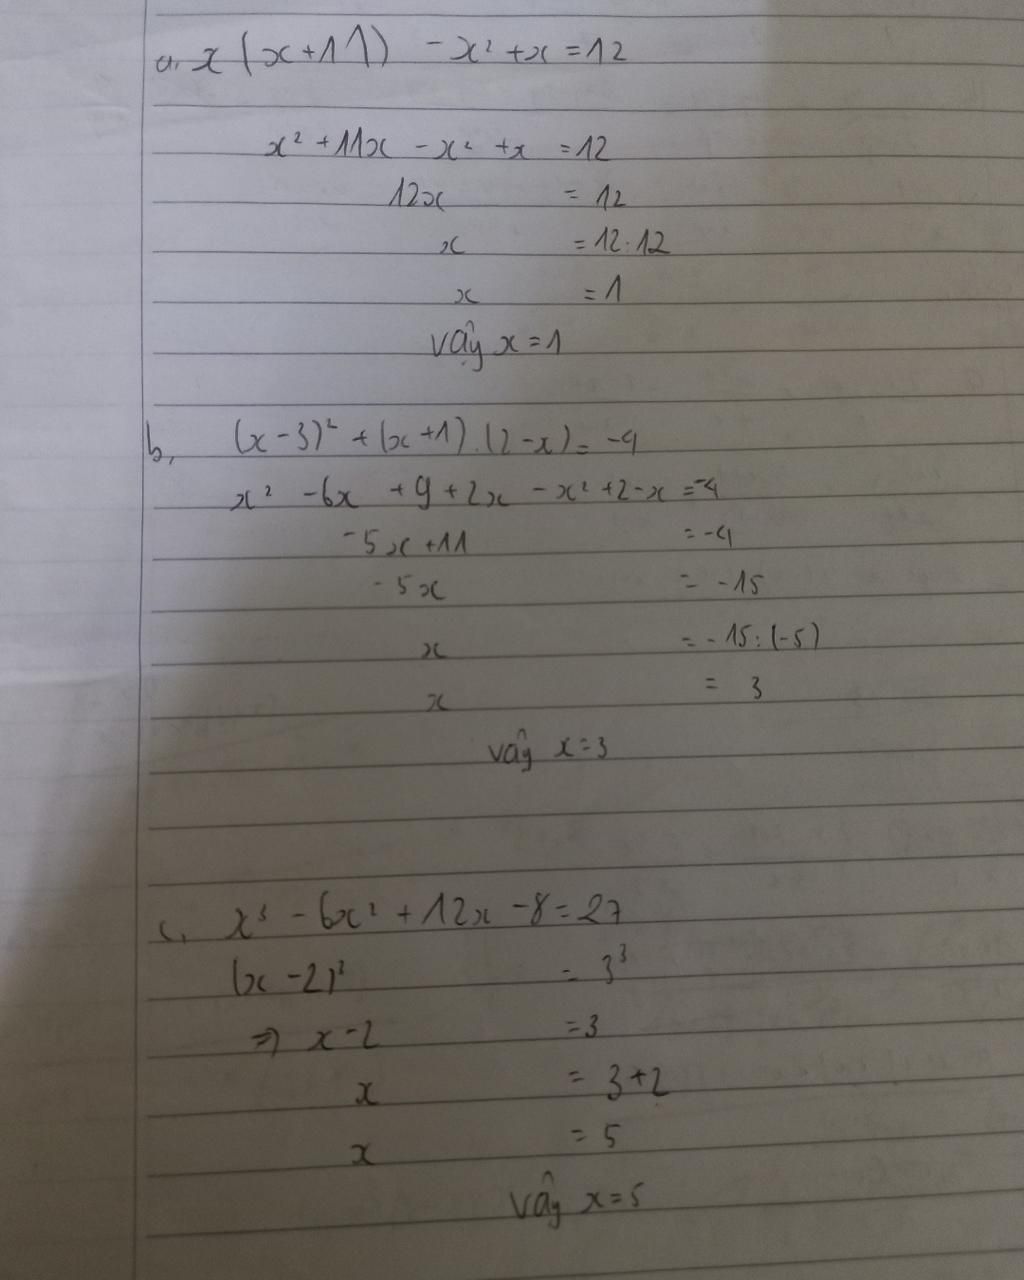 a, x (x+11) - x² + x = 12
x² + 11x - x² + x = 12
12x = 12
x = 12:12
x = 1
vậy x = 1
b, (x - 3)² + (x + 1).(2 - x) = -4
x² - 6x + 9 + 2x - x² + 2 - x = -4
-5x + 11 = -4
-5x = -15
x = -15:(-5)
x = 3
vậy x = 3
c, x³ - 6x² + 12x - 8 = 27
(x - 2)³ = 3³
⇒ x - 2 = 3
x = 3 + 2
x = 5
Vậy x = 5